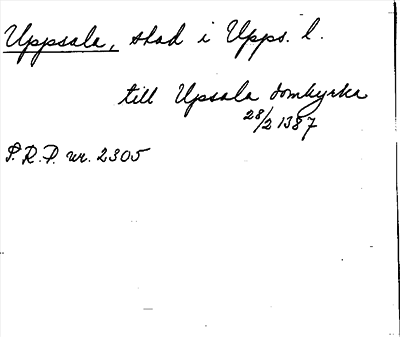 Uppsala, stad i Upps. l.
till Upsala domkyrka
28/2 1387
S.R.P. nr. 2305